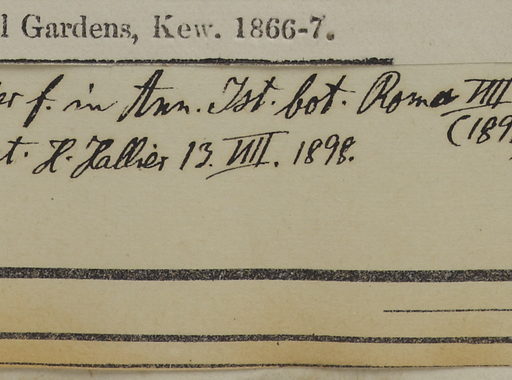 l Gardens, Kew. 1866-7.
er f. in Ann. Ist. bot. Roma VIII
(189
t. H. Hallier 13. VIII. 1898.